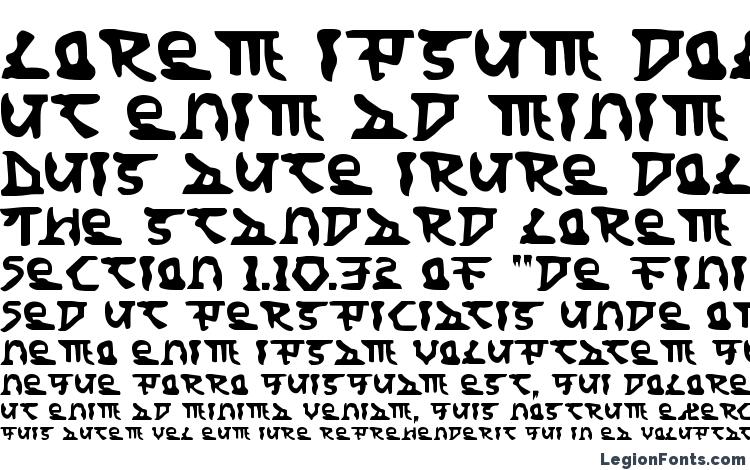 Lorem ipsum dol
Ut enim ad minim
Duis aute irure dol
The standard Lorem
Section 1.10.32 of "de Fini
Sed ut perspiciatis unde o
Nemo enim ipsam voluptatem q
Neque porro quisquam est, qui dolore
Ut enim ad minima veniam, quis nostrum exerc
Quis autem vel eum iure reprehenderit qui in ea volupt
LegionFonts.com